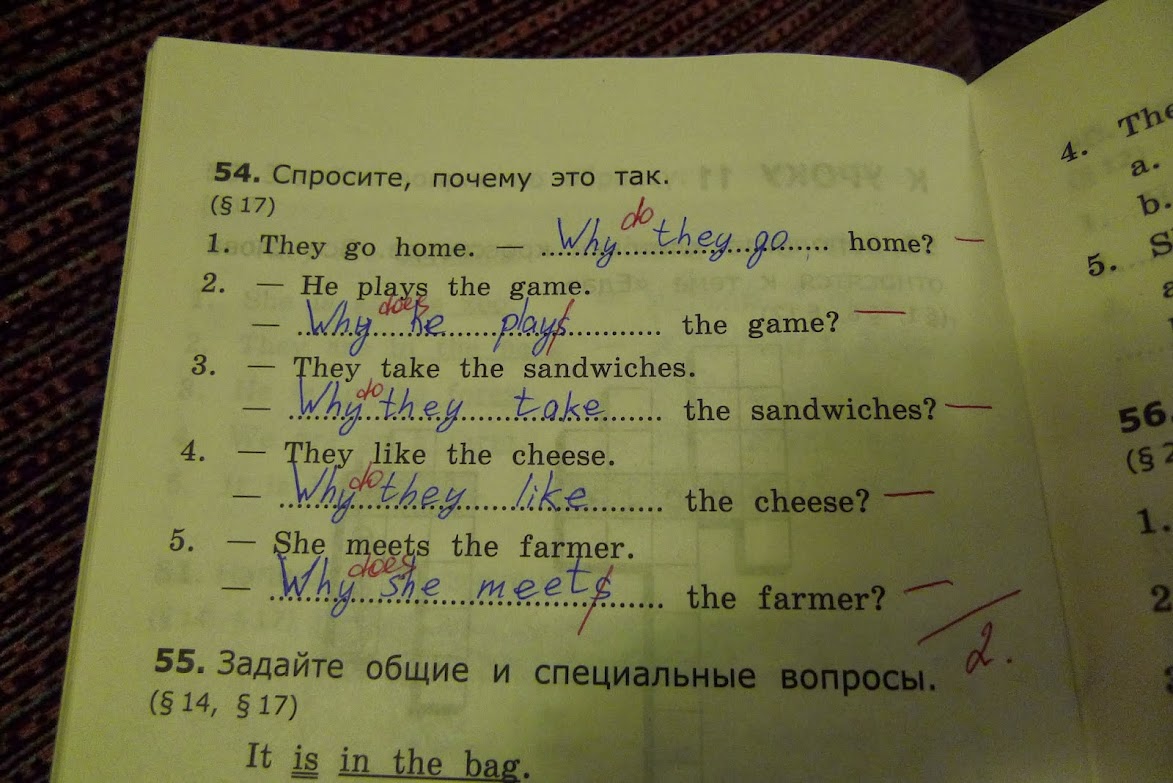 54. Спросите, почему это так.
(§ 17)
do
1. They go home. — Why they go home? —
2. — He plays the game.
does
— Why he plays the game? —
3. — They take the sandwiches.
do
— Why they take the sandwiches? —
4. — They like the cheese.
do
— Why they like the cheese? —
5. — She meets the farmer.
does
— Why she meets the farmer? —
2.
55. Задайте общие и специальные вопросы.
(§ 14, § 17)
It is in the bag.
4. The
a.
b.
5. S
56.
(§ 2
1.
2